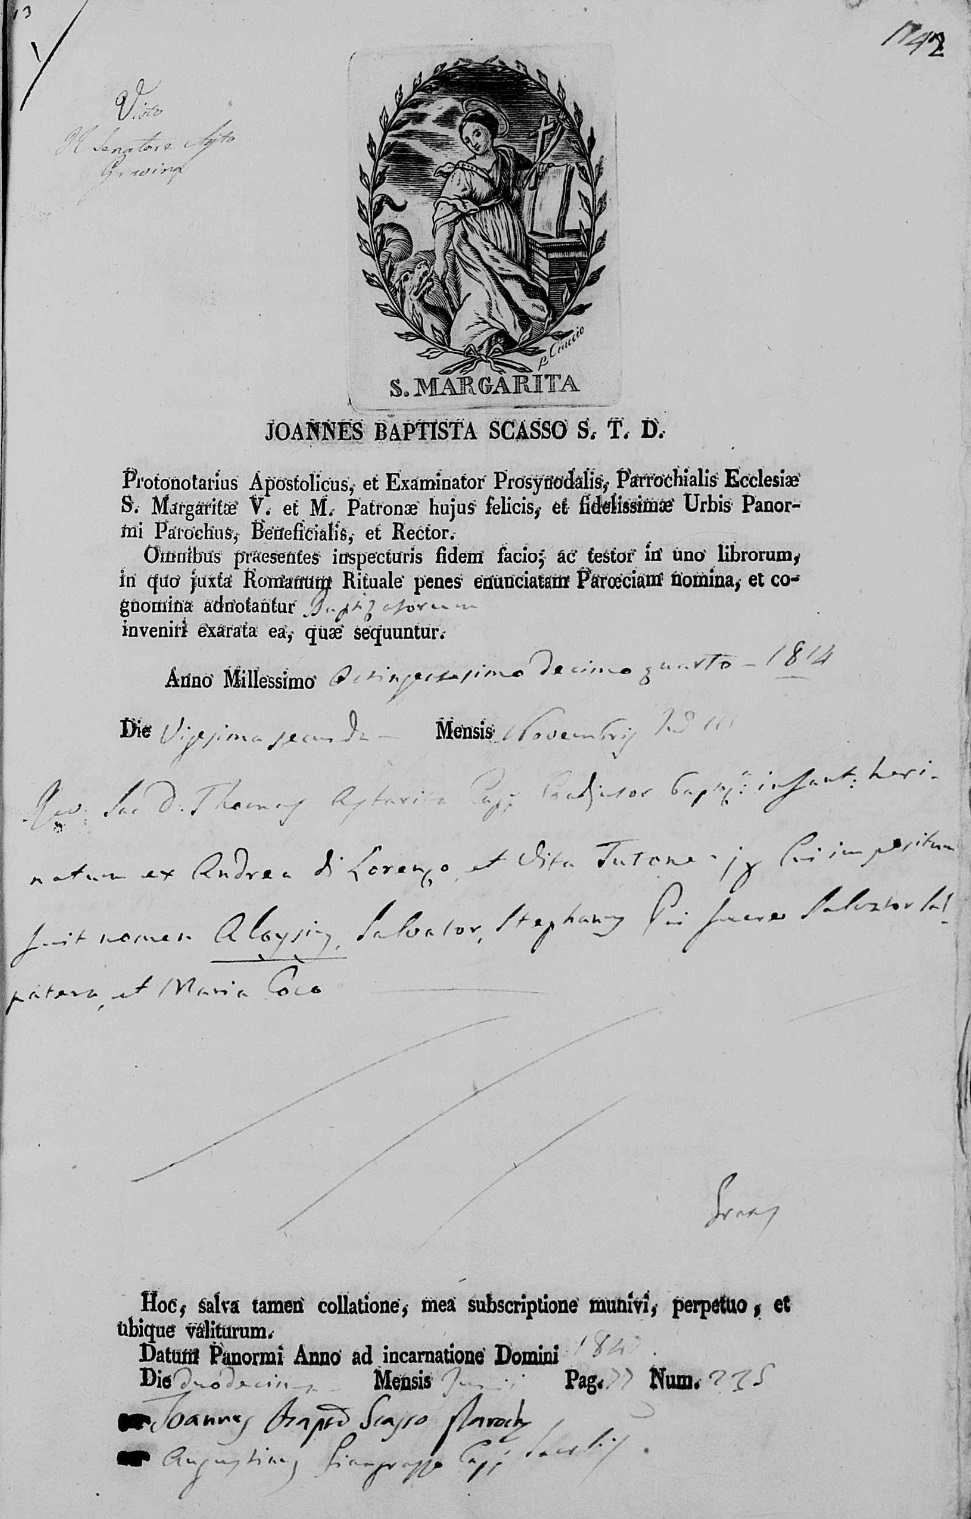 13
1742
Visto
Il Senatore
S. MARGARITA
JOANNES BAPTISTA SCASSO S. T. D.
Protonotarius Apostolicus, et Examinator Prosynodalis, Parrochialis Ecclesiæ
S. Margaritæ V. et M. Patronæ hujus felicis, et fidelissimæ Urbis Panor-
mi Parochus, Beneficialis, et Rector.
Omnibus praesentes inspecturis fidem facio, ac testor in uno librorum,
in quo juxta Romanum Rituale penes enunciatam Parœciam nomina, et co-
gnomina adnotantur Baptizatorum
inveniri exarata ea, quæ sequuntur.
Anno Millessimo Octingentesimo decimo quarto - 1814
Die Vigesima secunda Mensis Novembris
Sac. D. Thomas Coadjutor infant: heri
natum ex Andrea di Lorenzo, et Vita Tutone jg Cui impositum
fuit nomen Aloysius, Salvator, Stephanus Pni fuere Salvator Sal-
patera, et Maria Coco
Hoc, salva tamen collatione, mea subscriptione munivi, perpetuo, et
ubique valiturum.
Datum Panormi Anno ad incarnatione Domini 184
Die duodecima Mensis Junii Pag. 77 Num. 235
Joannes Bapta Scasso Parochus
Augustinus